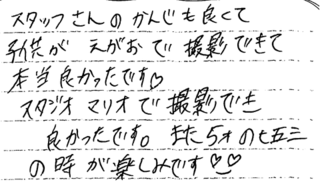 スタッフさんのかんじも良くて
子供が えがおで 撮影できて
本当良かったです♡
スタジオ マリオで 撮影でき
良かったです。また5才の七五三
の時が楽しみです